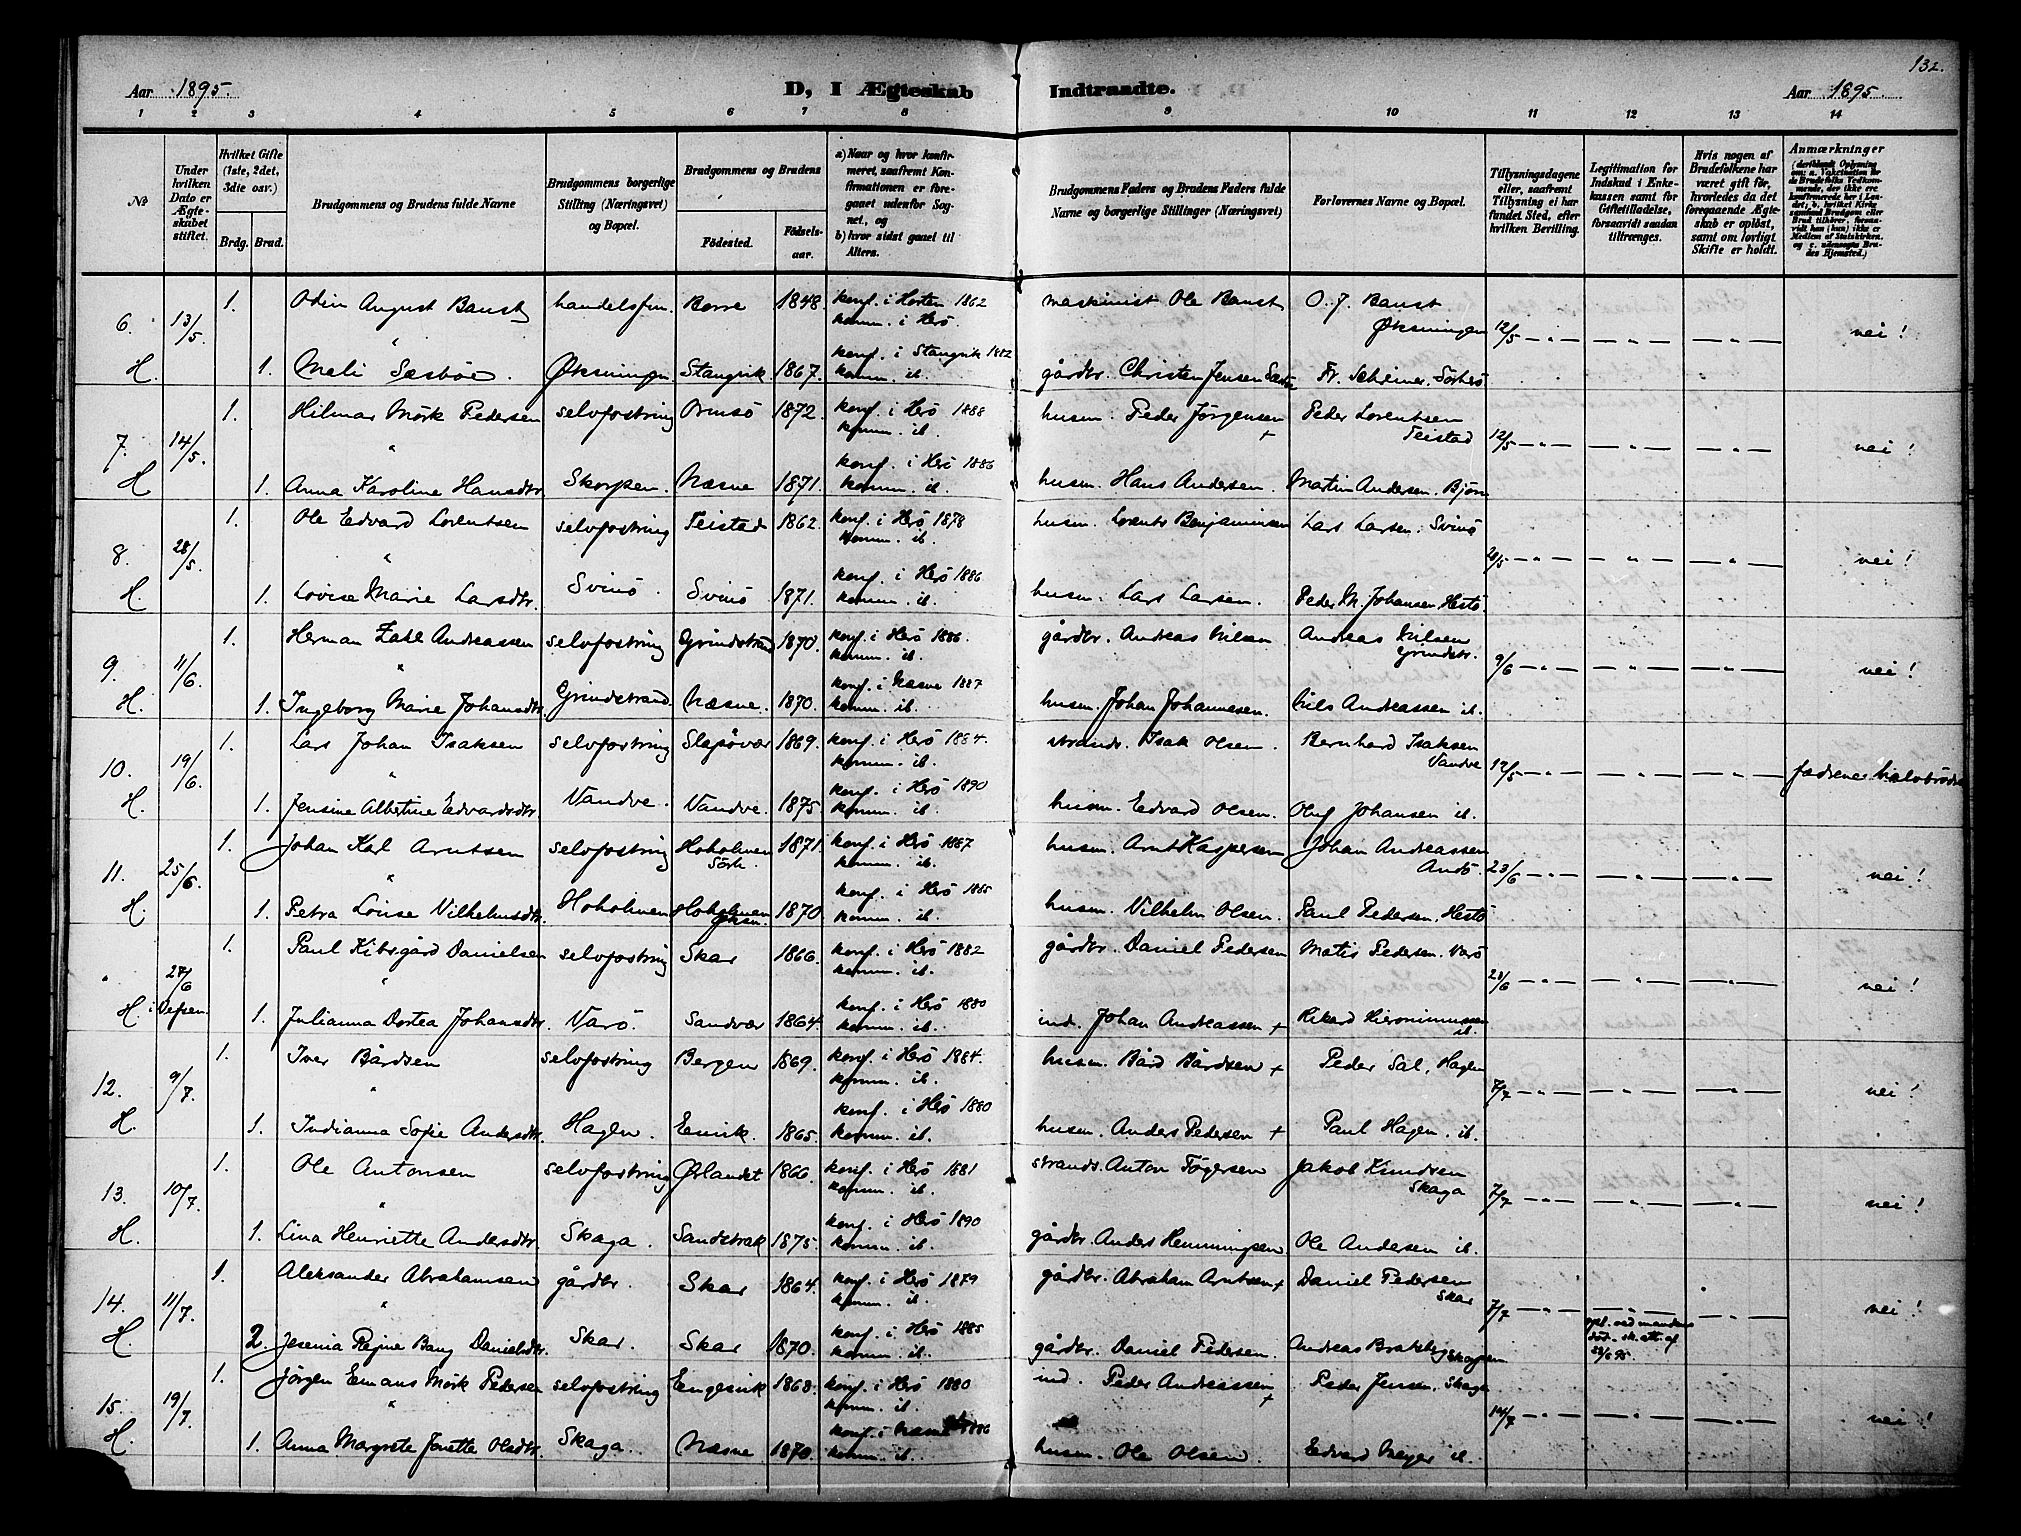 132.
Aar 1895. D, I Ægteskab Indtraadte. Aar 1895
1 2 3 4 5 6 7 8 9 10 11 12 13 14
№
Under hvilken Dato er Ægteskabet stiftet.
Hvilket Gifte (1ste, 2det, 3die osv.)
Brdg. Brud.
Brudgommens og Brudens fulde Navne
Brudgommens borgerlige Stilling (Næringsvei) og Bopæl.
Brudgommens og Brudens
Fødested. Fødselsaar.
a) Naar og hvor konfirmeret, saafremt Konfirmationen er foregaaet udenfor Sognet, og
b) hvor sidst gaaet til Alters.
Brudgommens Faders og Brudens Faders fulde Navne og borgerlige Stillinger (Næringsvei)
Forlovernes Navne og Bopæl.
Tillysningsdagene eller, saafremt Tillysning ei har fundet Sted, efter hvilken Bevilling.
Legitimation for Indskud i Enkekassen samt for Giftetilladelse, forsaavidt saadan tiltrænges.
Hvis nogen af Brudefolkene har været gift før, hvorledes da det foregaaende Ægteskab er opløst, samt om lovligt Skifte er holdt.
Anmærkninger
6. 13/5 1. Odin August Baust handelsfm. Borre 1848. konf. i Horten 1862 maskinist Ole Baust O. J. Baust
komm. i Herö. Øksningen 12/5 nei!
H. 1. Meli Sæsböe. Øksningen Stangvik 1867. konf. i Stangvik 1882 gårdbr. Christen Jensen Fr. Scheines. Sörherö
komm. ib.
7. 14/5. 1. Hilmar Mörk Pedersen selvfostring Ormsö 1872. konf. i Herö 1888 husm. Peder Jørgensen + Peder Lorentsen
komm. ib. Teistad 12/5 nei!
H 1. Anna Karoline Hansdtr. Skorpen. Næsne 1871. konf. i Herö 1886 husm. Hans Andersen. Martin Andersen. Bjørn
komm. ib.
8. 28/5. 1. Ole Edvard Lorentsen selvfostring Teistad 1862. konf. i Herö 1878 husm. Lorents Benjaminsen Lars Larsen. Svinö
komm. ib. nei!
H. 1. Lovise Marie Larsdtr. Svinö. Svinö 1871. konf. i Herö 1886 husm. Lars Larsen. Peder M. Johansen. Hestö
komm. ib.
9. 11/6. 1. Herman Zahl Andreassen selvfostring Grindstrand 1870. konf. i Herö 1886. gårdbr. Andreas Nilsen Andreas Nilsen
komm. ib. Grindstr. 9/6 nei!
H. 1. Ingeborg Marie Johansdtr. Grindstrand Næsne. 1870. konf. i Næsne 1887 husm. Johan Johannesen. Nils Andreassen ib.
komm. ib.
10. 19/6. 1. Lars Johan Isaksen selvfostring Slapövær 1869. konf. i Herö 1884. strands. Isak Olsen. Bernhard Isaksen
komm. ib. Vandve 12/5 fædrene halvbrödre
H. 1. Jensine Albertine Edvardsdtr. Vandve. Vandve. 1875 konf. i Herö 1890 husm. Edvard Olsen. Oluf Johansen ib.
komm. ib.
11. 25/6. 1. Johan Karl Arntsen selvfostring Hoholmen Sörh. 1871. konf. i Herö 1887 husm. Arnt Kaspersen Johan Andreassen
komm. ib. Andö. 23/6 nei!
H. 1. Petra Lovise Vilhelmsdtr. Hoholmen Hoholmen Øksn. 1870 konf. i Herö 1885 husm. Vilhelm Olsen. Paul Pedersen. Hestö
komm. ib.
" 27/6 1. Paul Kibsgård Danielsen selvfostring Skar 1866. konf. i Herö 1882 gårdbr. Daniel Pedersen Matis Pedersen. Varö
komm. ib. 23/6 nei!
H. i Vefsen 1. Julianna Dortea Johansdtr. Varö. Sandvær 1864. konf. i Herö 1880 ind. Johan Andreassen + Rikard Hieronimussen ib.
komm. ib.
12. 9/7. 1. Iver Bårdsen selvfostring Bergen 1869. konf. i Herö 1884. husm. Bård Bårdsen + Peder Sal, Hagen
komm. ib. 7/7 nei!
H. 1. Indianna Sofie Andersdtr. Hagen. 1865. konf. i Herö 1880 husm. Anders Pedersen + Paul Hagen. ib.
komm. ib.
13. 10/7. 1. Ole Antonsen selvfostring Ørlandet 1866. konf. i Herö 1881 strands. Anton Tøgersen Jakob Knudsen
komm. ib. Skaga 7/7 nei!
H. 1. Lina Henriette Andersdtr. Skaga. Sandstrak 1875. konf. i Herö 1890 gårdbr. Anders Hemmingsen Ole Andersen ib.
komm. ib.
14. 11/7. 1. Aleksander Abrahamsen gårdbr. Skar 1864. konf. i Herö 1879 gårdbr. Abraham Arntsen + Daniel Pedersen
komm. ib. Skar 7/7 nei!
H. 2. Jesenia Regine Bang Danielsdtr. Skar. Skar 1870. konf. i Herö 1885 gårdbr. Daniel Pedersen. Andreas Skorpen opl. ved mandens död - sk. att. af
komm. ib.
15. 19/7. 1. Jørgen Emaus Mörk Pedersen selvfostring Engesvik 1868. konf. i Herö 1880 ind. Peder Andreassen + Peder Jensen, Skaga
komm. ib. 14/7 nei!
H. 1. Anna Margrete Jonette Olsdtr. Skaga. Næsne 1870. konf. i Næsne 1886 husm. Ole Olsen. Edvard Meyer ib.
komm. ib.